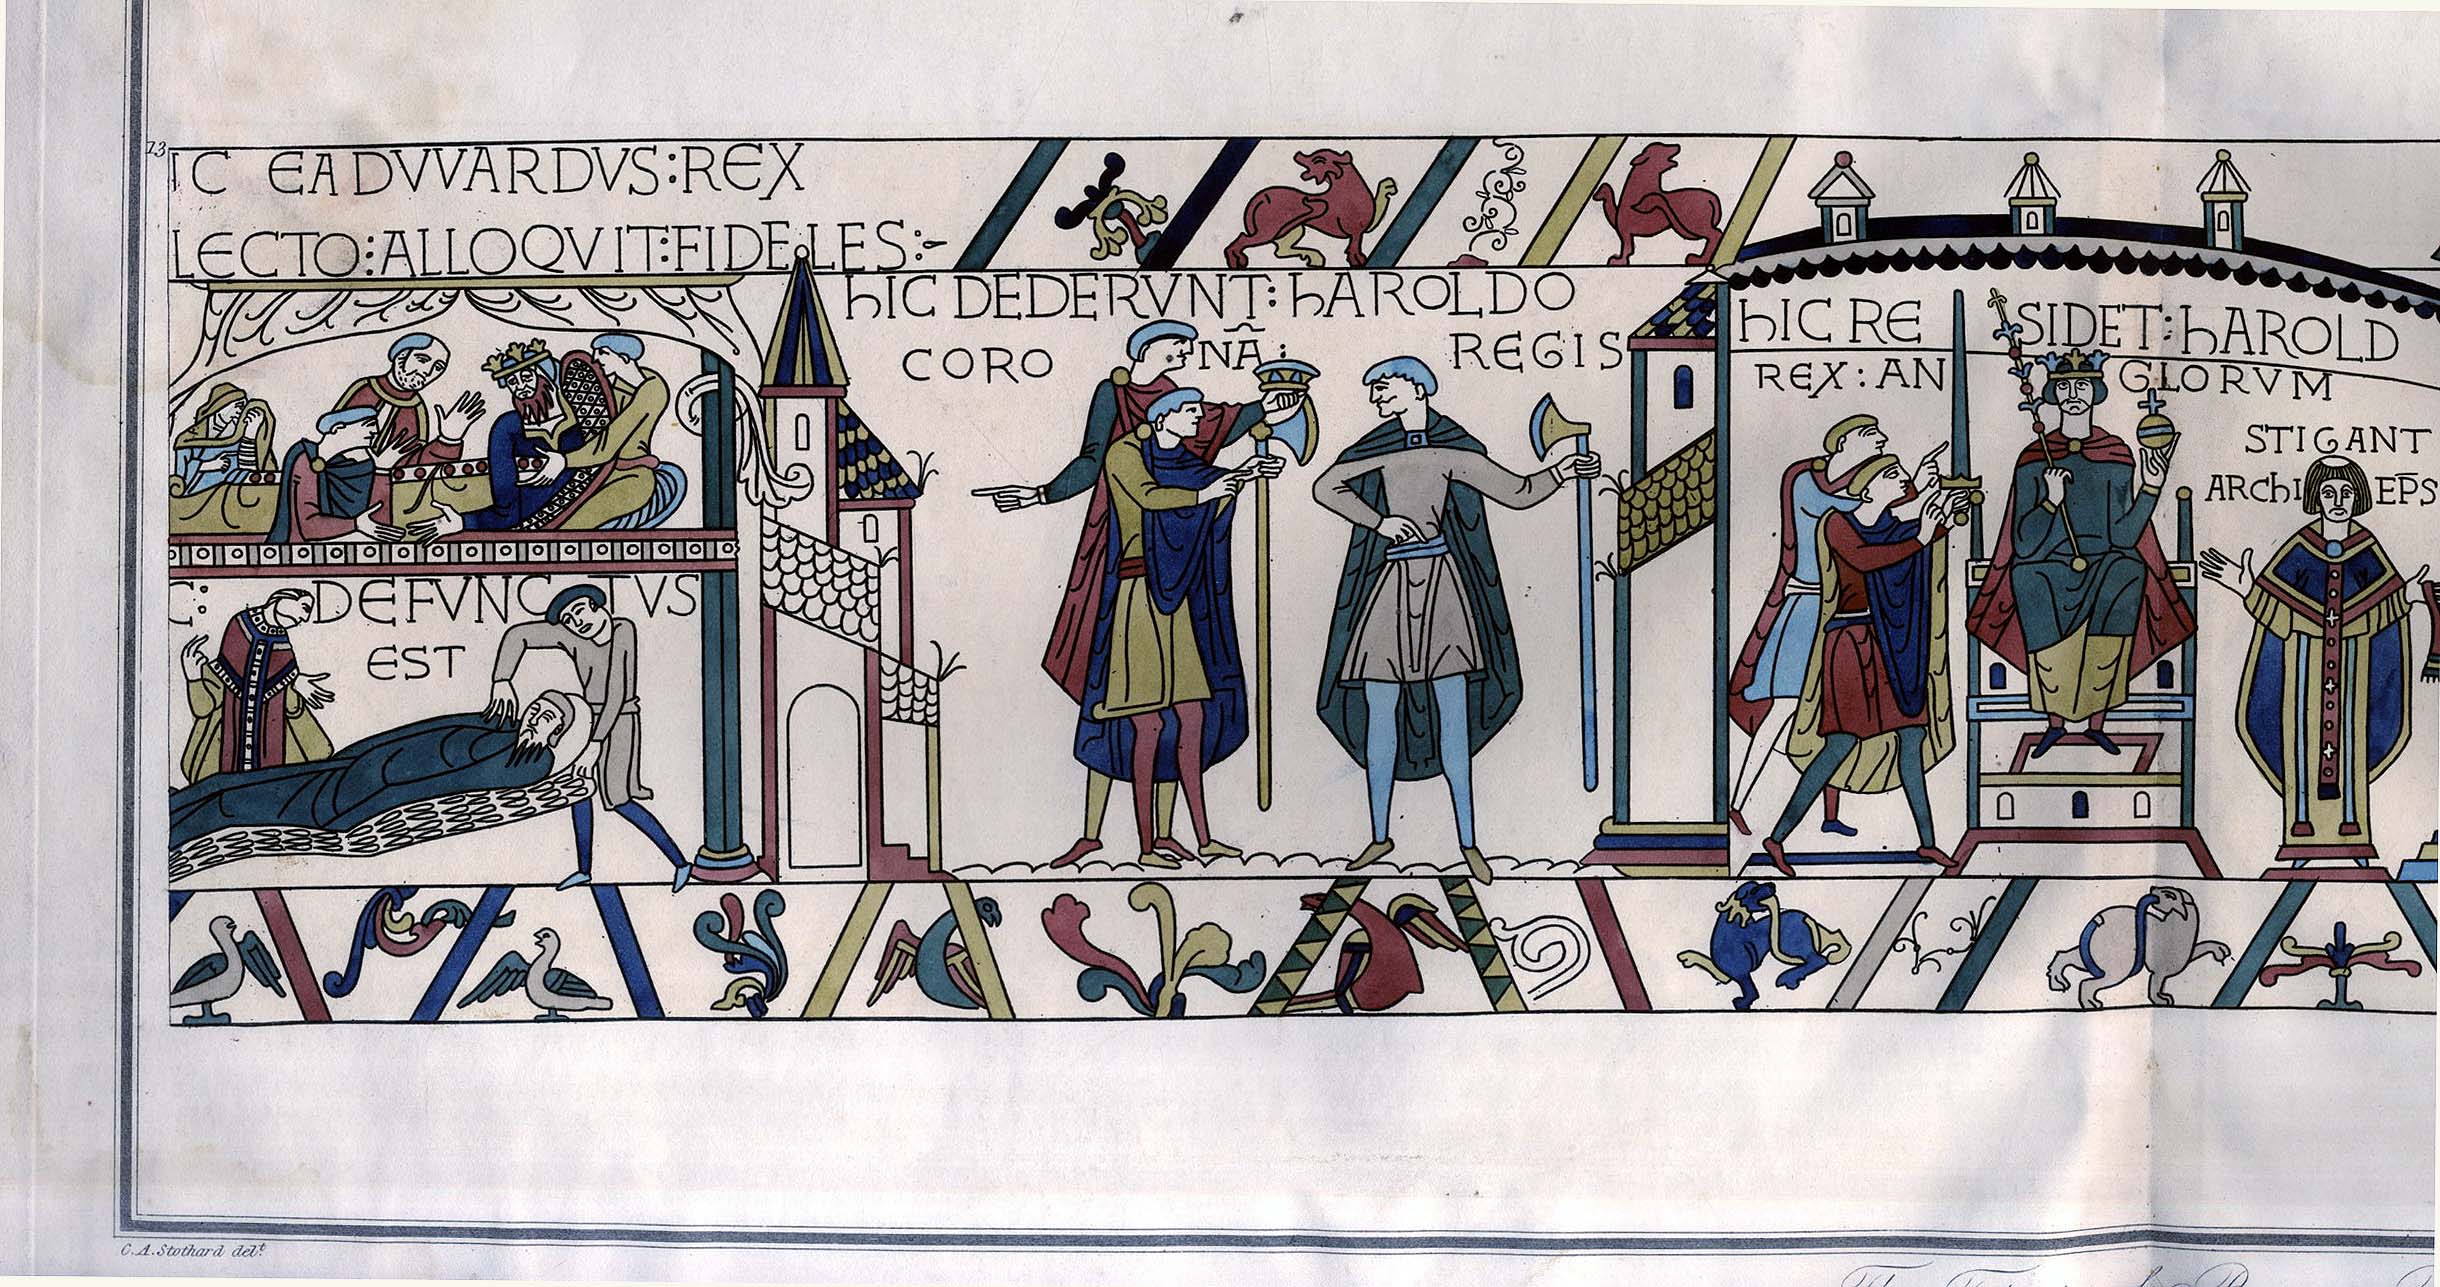 13
IC EADVVARDVS:REX
LECTO:ALLOQVIT:FIDELES:-
C: DEFVNCTVS
EST
hIC DEDERVNT:hAROLDO
CORONÃ: REGIS
hIC RESIDET:hAROLD
REX:ANGLORVM
STIGANT
ARChIEP̄S
C.A.Stothard delt.